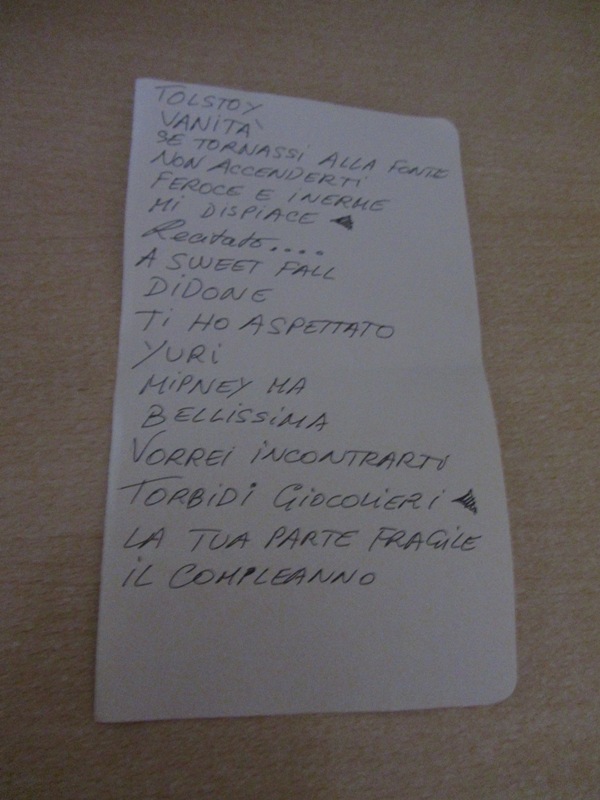 TOLSTOY
VANITÀ
SE TORNASSI ALLA FONTE
NON ACCENDERTI
FEROCE E INERME
MI DISPIACE
Recitato....
A SWEET FALL
DIDONE
TI HO ASPETTATO
YURI
MIPNEY MA
BELLISSIMA
VORREI INCONTRARTI
TORBIDI GIOCOLIERI
LA TUA PARTE FRAGILE
IL COMPLEANNO